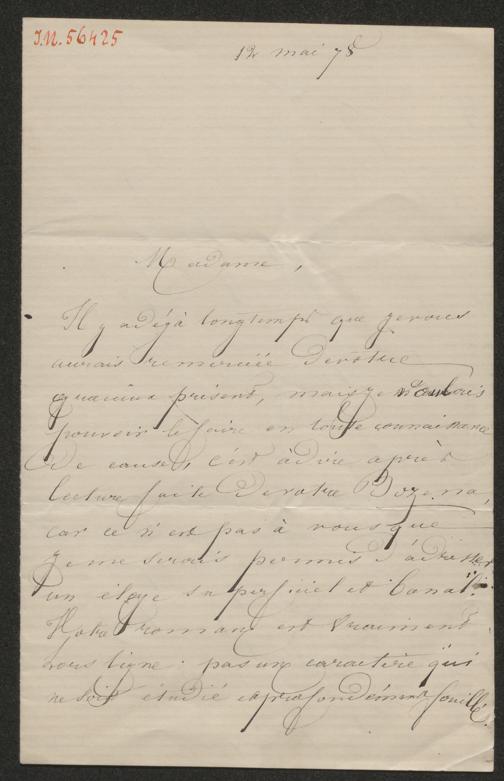 I.N. 56425
12 mai 78
Madame,
Il y a déjà longtemps que je vous
aurais remerciée de votre
gracieux présent, mais je voulais
pouvoir le faire en toute connaissance
de cause, c'est à dire après
lecture faite de votre Bozena,
car ce n'est pas à vous que
je me serais permis d'adresser
un éloge superficiel et banal.
Votre roman est vraiment
hors ligne: pas un caractère qui
ne soit étudié et profondément fouillé.